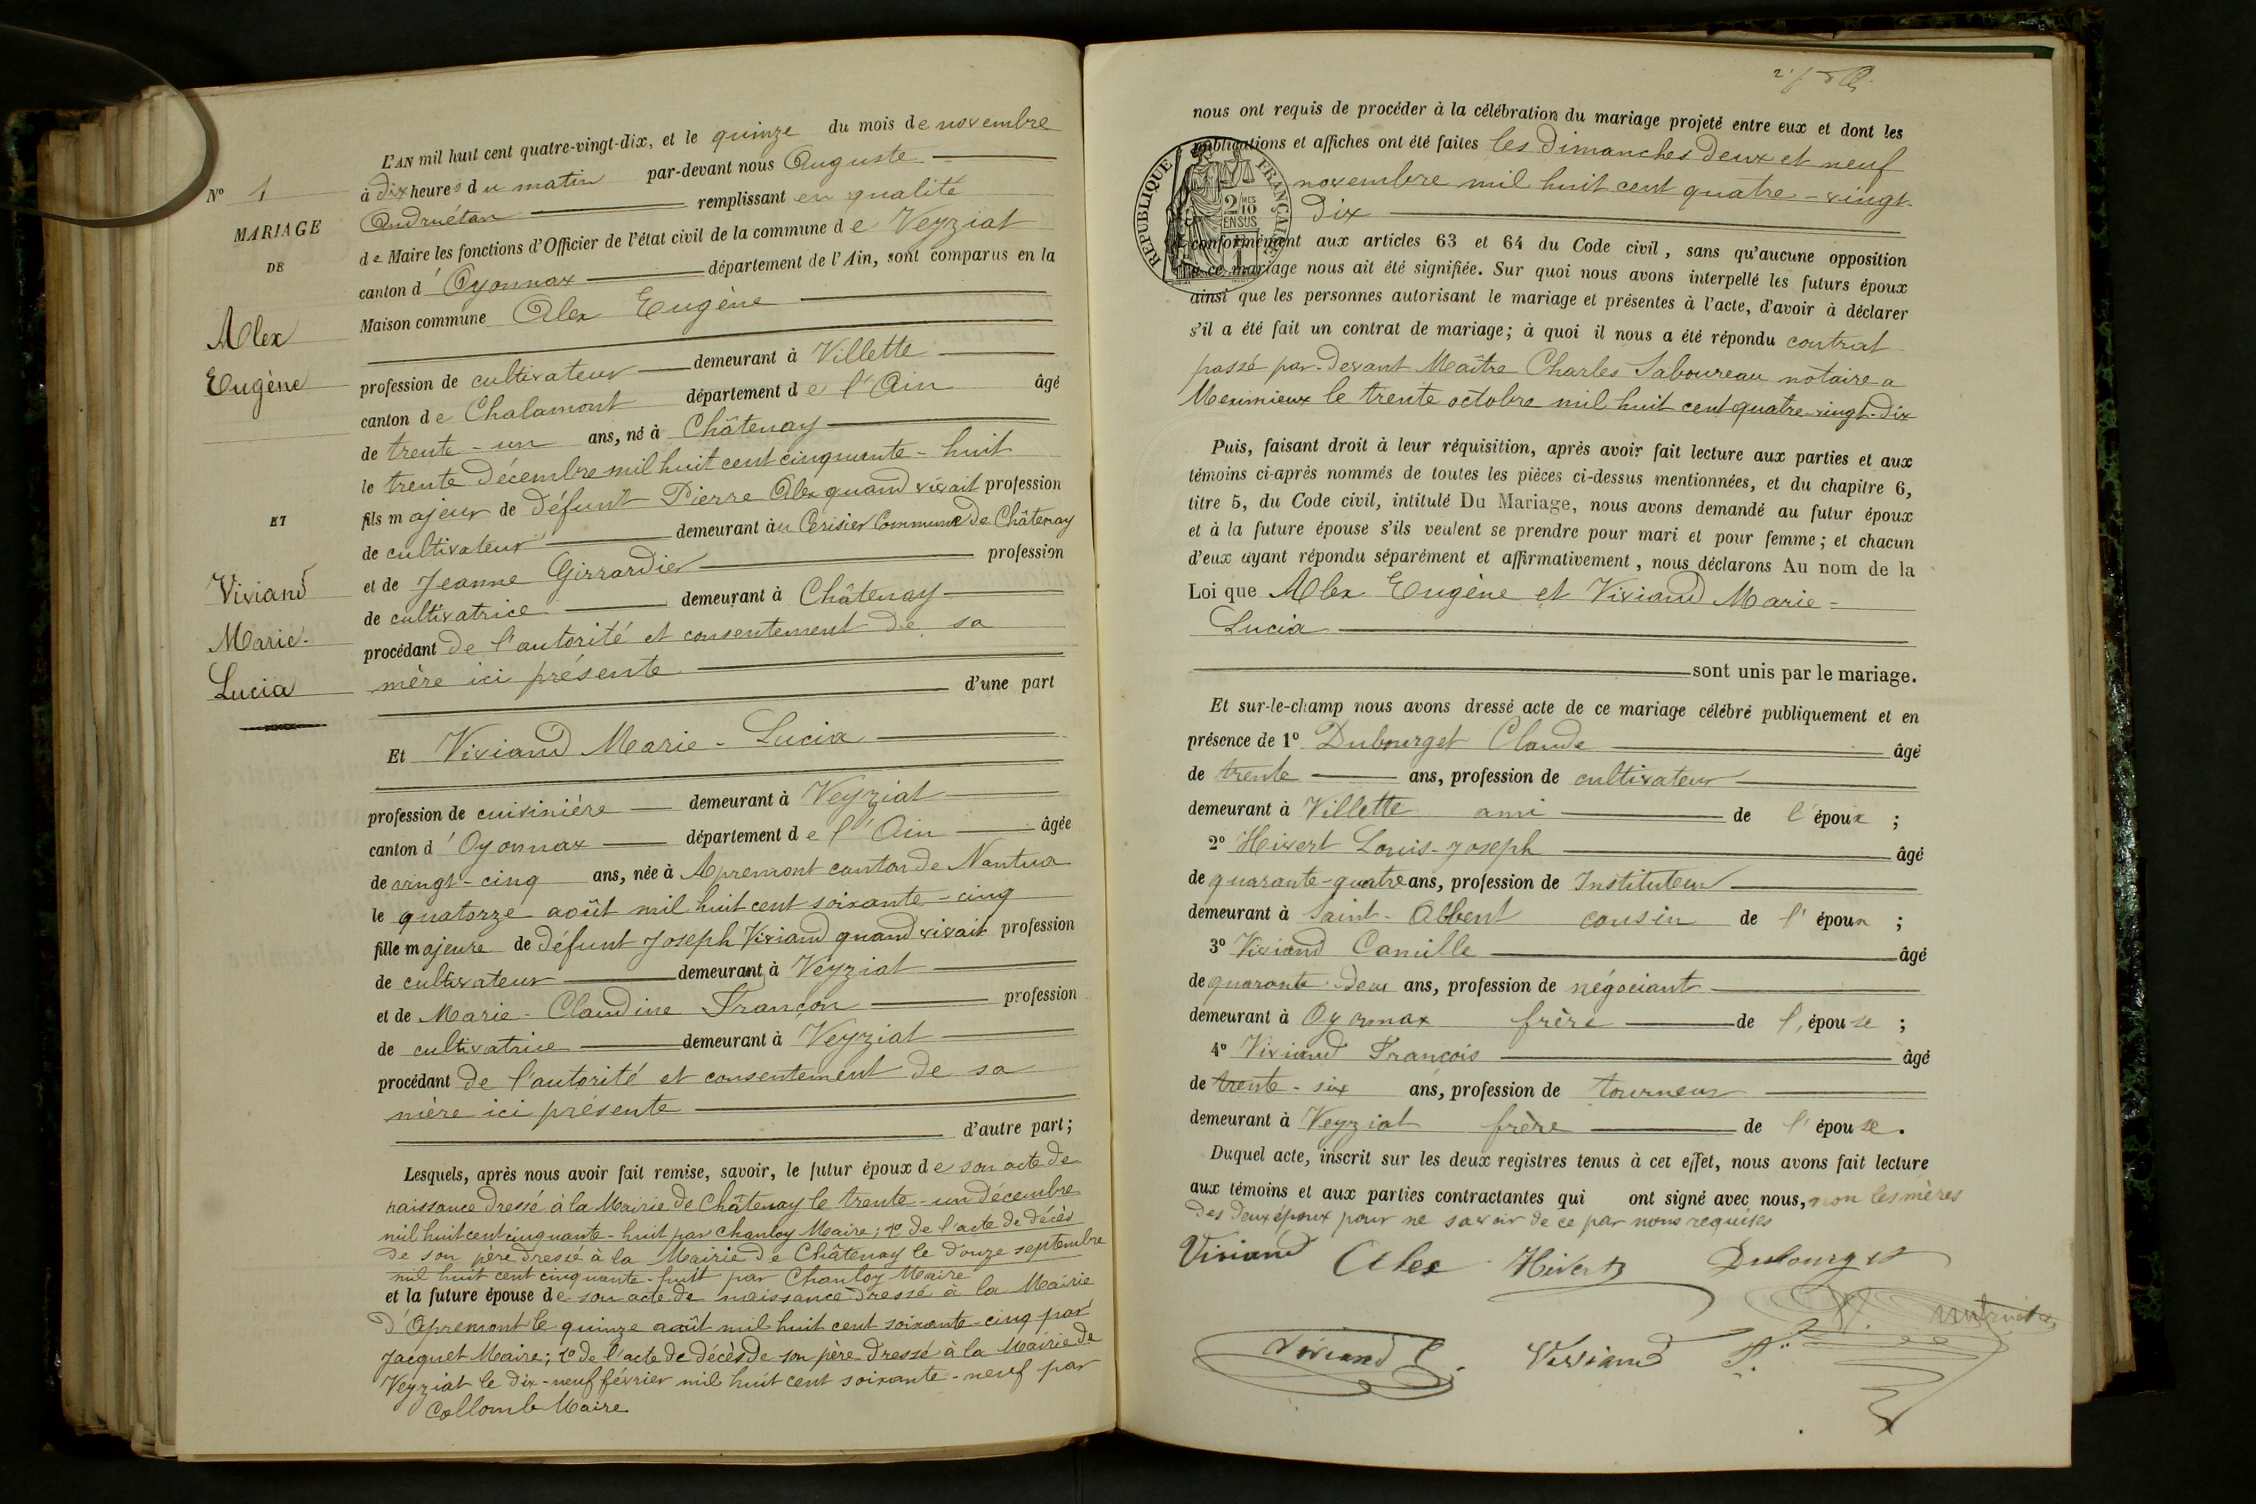 L'AN mil huit cent quatre-vingt-dix, et le quinze du mois de novembre
à dix heures du matin par-devant nous Auguste
Andruétan remplissant en qualité
de Maire les fonctions d'Officier de l'état civil de la commune de Veyziat
canton d'Oyonnax département de l'Ain, sont comparus en la
Maison commune Alex Eugène
profession de cultivateur demeurant à Villette
canton de Chalamont département de l'Ain âgé
de trente-un ans, né à Châtenay
le trente Décembre mil huit cent cinquante-huit
fils majeur de Défunt Pierre Alex quand vivait profession
de cultivateur demeurant au Cerisier Commune De Châtenay
et de Jeanne Girrardier profession
de cultivatrice demeurant à Châtenay
procédant de l'autorité et consentement de sa
mère ici présente
d'une part
Et Viviand Marie-Lucia
profession de cuisinière demeurant à Veyziat
canton d'Oyonnax département de l'Ain âgée
de vingt-cinq ans, née à Apremont canton de Nantua
le quatorze août mil huit cent soixante-cinq
fille majeure de Défunt Joseph Viviand quand vivait profession
de cultivateur demeurant à Veyziat
et de Marie-Claudine Françon profession
de cultivatrice demeurant à Veyziat
procédant de l'autorité et consentement de sa
mère ici présente
d'autre part;
Lesquels, après nous avoir fait remise, savoir, le futur époux de son acte de
naissance dressé à la Mairie de Châtenay le trente-un décembre
mil huit cent cinquante-huit par Chanloy Maire; 2º de l'acte de décès
de son père dressé à la Mairie de Châtenay le douze septembre
mil huit cent cinquante-huit par Chanloy Maire
et la future épouse de son acte de naissance dressé à la Mairie
d'Apremont le quinze août mil huit cent soixante-cinq par
Jacquet Maire; 2º de l'acte de décès de son père dressé à la Mairie de
Veyziat le dix-neuf février mil huit cent soixante-neuf par
Collomb Maire
Nº 1
MARIAGE
DE
Alex
Eugène
ET
Viviand
Marie-
Lucia
nous ont requis de procéder à la célébration du mariage projeté entre eux et dont les
publications et affiches ont été faites les dimanches deux et neuf
novembre mil huit cent quatre-vingt-
dix
conformément aux articles 63 et 64 du Code civil, sans qu'aucune opposition
à ce mariage nous ait été signifiée. Sur quoi nous avons interpellé les futurs époux
ainsi que les personnes autorisant le mariage et présentes à l'acte, d'avoir à déclarer
s'il a été fait un contrat de mariage; à quoi il nous a été répondu contrat
passé par-devant Maître Charles Saboureau notaire a
Meximieux le trente octobre mil huit cent quatre-vingt-dix
RÉPUBLIQUE FRANÇAISE
2/10 MES
EN SUS
Puis, faisant droit à leur réquisition, après avoir fait lecture aux parties et aux
témoins ci-après nommés de toutes les pièces ci-dessus mentionnées, et du chapitre 6,
titre 5, du Code civil, intitulé Du Mariage, nous avons demandé au futur époux
et à la future épouse s'ils veulent se prendre pour mari et pour femme; et chacun
d'eux ayant répondu séparément et affirmativement, nous déclarons Au nom de la
Loi que Alex Eugène et Viviand Marie-
Lucia
sont unis par le mariage.
Et sur-le-champ nous avons dressé acte de ce mariage célébré publiquement et en
présence de 1º Dubourget Claude âgé
de trente ans, profession de cultivateur
demeurant à Villette ami de l'époux;
2º Hivert Louis-Joseph âgé
de quarante-quatre ans, profession de Instituteur
demeurant à Saint-Albent cousin de l'époux;
3º Viviand Camille âgé
de quarante-deux ans, profession de négociant
demeurant à Oyonnax frère de l'épouse;
4º Viviand François âgé
de trente-six ans, profession de tourneur
demeurant à Veyziat frère de l'épouse.
Duquel acte, inscrit sur les deux registres tenus à cet effet, nous avons fait lecture
aux témoins et aux parties contractantes qui ont signé avec nous, non les mères
des deux époux pour ne savoir de ce par nous requises
Viviand Alex Hivert Dubourget
Viviand C. Viviand F.